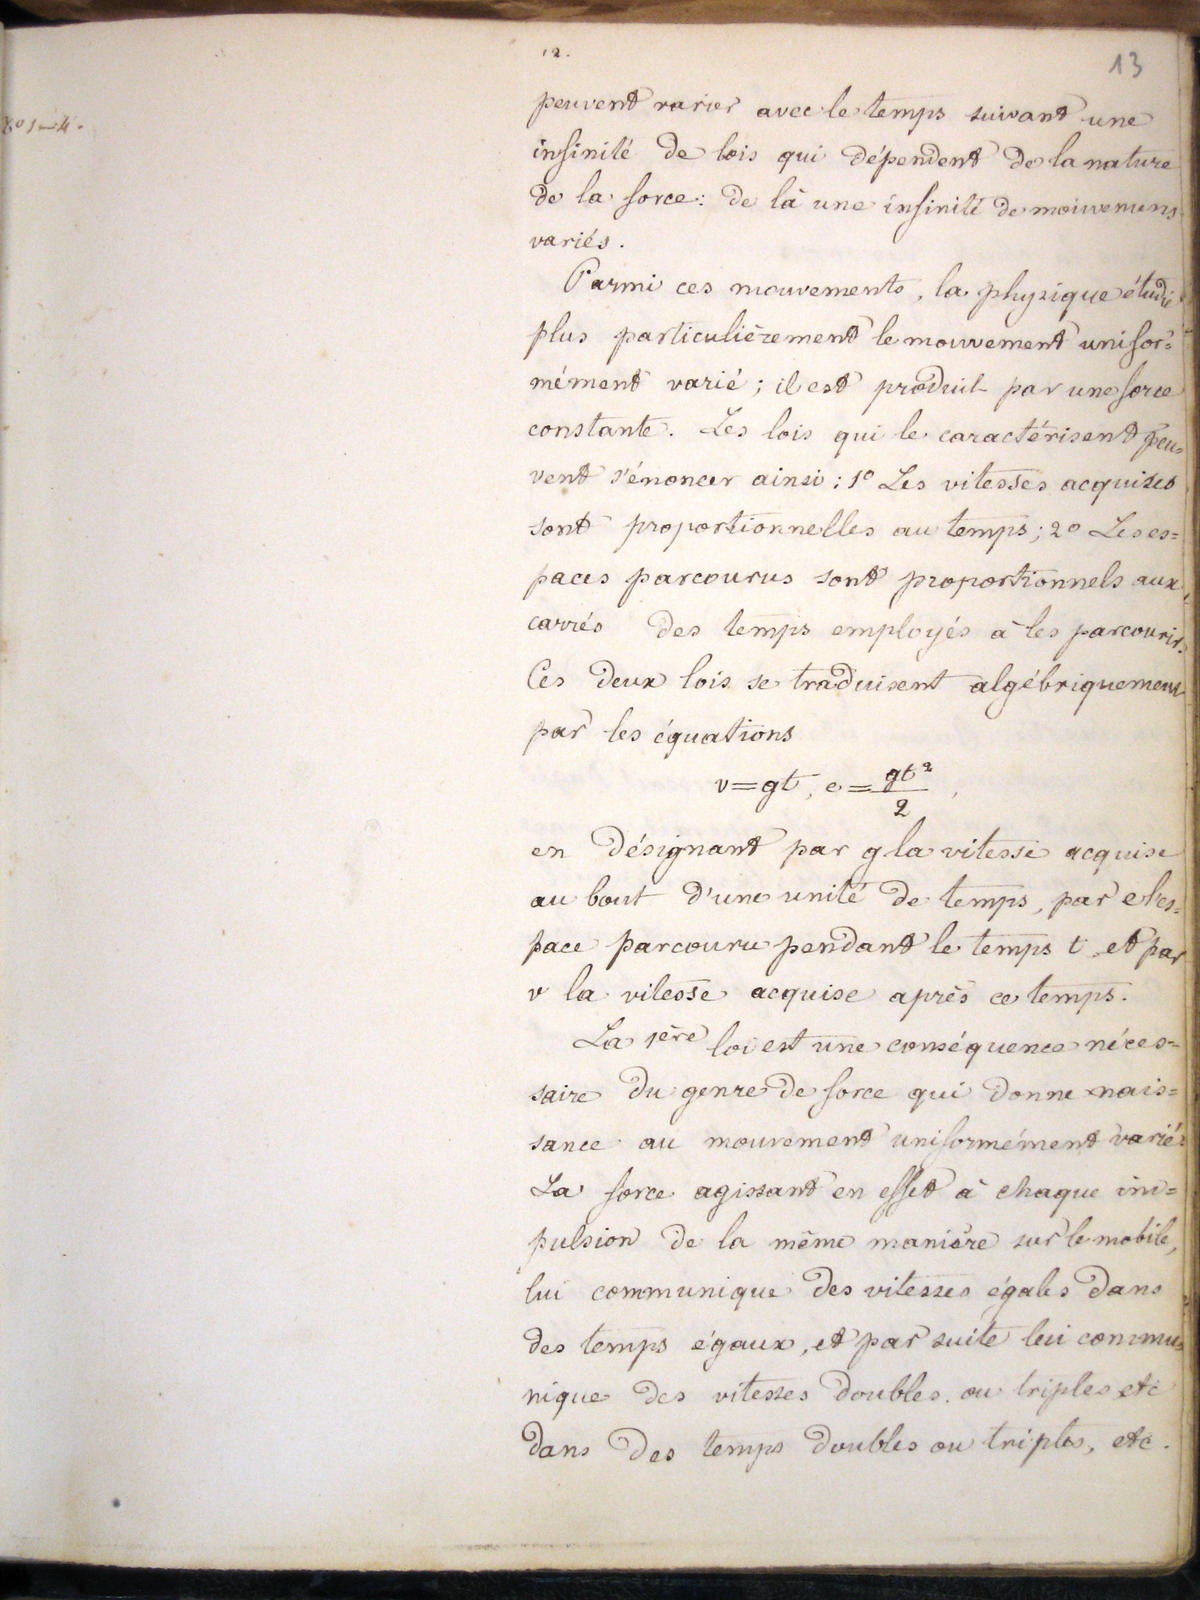 12.
13
peuvent varier avec le temps suivant une
infinité de lois qui dépendent de la nature
de la force : de là une infinité de mouvemens
variés.
Parmi ces mouvements, la physique étudie
plus particulièrement le mouvement unifor=
mément varié ; il est produit par une force
constante. Les lois qui le caractérisent peu=
vent s'énoncer ainsi : 1º Les vitesses acquises
sont proportionnelles au temps ; 2º Les es=
paces parcourus sont proportionnels aux
carrés des temps employés à les parcourir.
Ces deux lois se traduisent algébriquement
par les équations
v = gt, e = gt²/2,
en désignant par g la vitesse acquise
au bout d'une unité de temps, par e l'es=
pace parcouru pendant le temps t et par
v la vitesse acquise après ce temps.
La 1ère loi est une conséquence néces=
saire du genre de force qui donne nais=
sance au mouvement uniformément varié.
La force agissant en effet à chaque im=
pulsion de la même manière sur le mobile,
lui communique des vitesses égales dans
des temps égaux, et par suite lui commu=
nique des vitesses doubles ou triples etc
dans des temps doubles ou triples, etc.